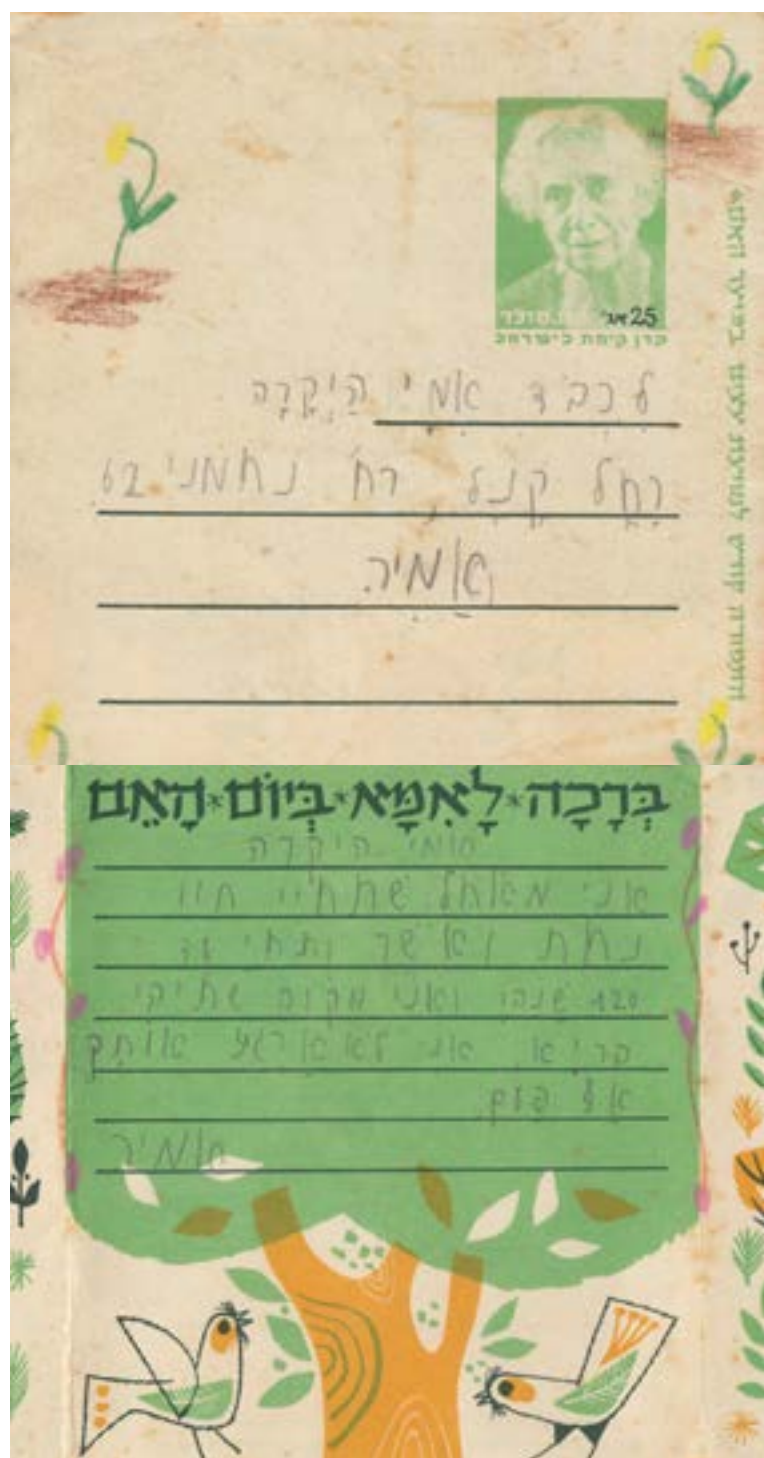 25 אג'
קרן קימת לישראל
לִכְבֹד אִמִי הַיְקָרָה
רָחֵל קֶנֶל, רח' נחמני 62
אָמִיר.
בְּרָכָה * לָאִמָּא * בְּיוֹם * הָאֵם
אמי היקרה
אני מאחל שתחיי חיי
נחת ואשר ותחי עד
120 שנה ואני מקוה שתיהי
בריאה אני לא אראג אותך
אף פעם
אמיר